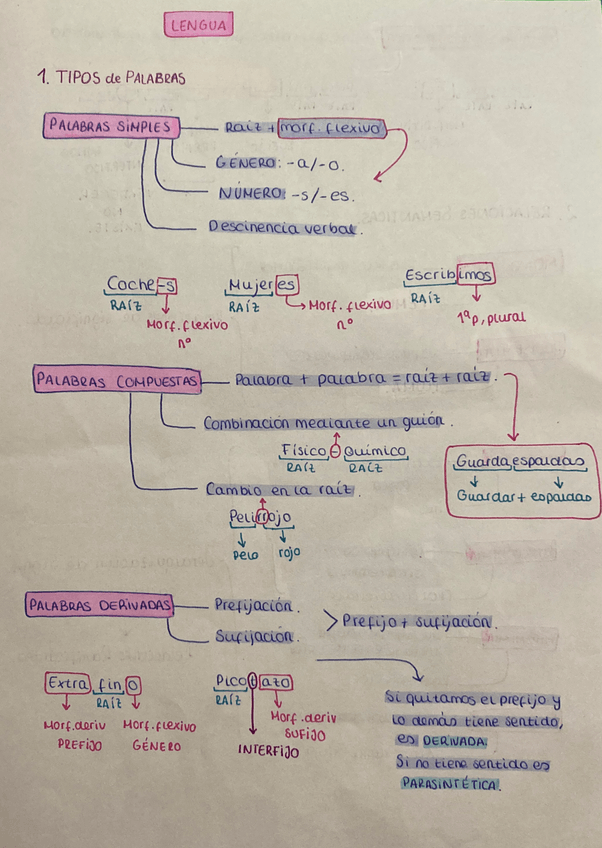 LENGUA
1. TIPOS de PALABRAS
PALABRAS SIMPLES
Raíz + morf. flexivo
GÉNERO: -a/-o.
NÚMERO: -s/-es.
Descinencia verbal.
Coche-s
RAÍZ
Morf. flexivo
nº
Mujer es
RAÍZ
Morf. flexivo
nº
Escribimos
RAÍZ
1ª p, plural
PALABRAS COMPUESTAS
Palabra + palabra = raíz + raíz.
Combinación mediante un guión.
Físico-Químico
RAÍZ RAÍZ
Guardaespaldas
Guardar + espaldas
Cambio en la raíz.
Pelirrojo
Pelo rojo
PALABRAS DERIVADAS
Prefijación.
Sufijación.
> Prefijo + sufijación.
Extra fin o
RAÍZ
Morf. deriv
PREFIJO
Morf. flexivo
GÉNERO
Pico t azo
RAÍZ
Morf. deriv
SUFIJO
INTERFIJO
Si quitamos el prefijo y
lo demás tiene sentido,
es DERIVADA.
Si no tiene sentido es
PARASINTÉTICA.